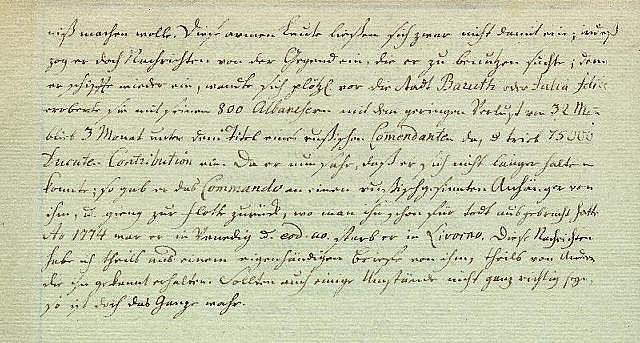 niß machen wolte. Diese armen Leute ließen sich zwar nicht damit ein; indeß
zog er doch Nachrichten von der Gegend ein, die er zu benutzen suchte; denn
er schiffte wieder ein, wandte sich plötzl. vor die Stadt Baruth oder Julia felix
eroberte sie mit seinen 800 Albanesern mit dem geringen Verlust von 32 Man
blieb 3 Monat unter dem Titel eines rußischen Comendanten da, u. trieb 75000
Ducaten Contribution ein. Da er nun sahe, daß er sich nicht länger halten
konnte; so gab er das Commando an einen rußisch gesinnten Anhänger von
ihm, u. gieng zur Flotte zurück, wo man ihn schon für todt ausgebracht hatte.
Ao 1774 war er in Venedig u. eod. ao. starb er in Livorno. Diese Nachrichten
habe ich theils aus einem eigenhändigen Briefe von ihm, theils von Andern
die ihn gekannt erhalten. Sollten auch einige Umstände nicht ganz richtig seyn,
so ist doch das Ganze wahr.